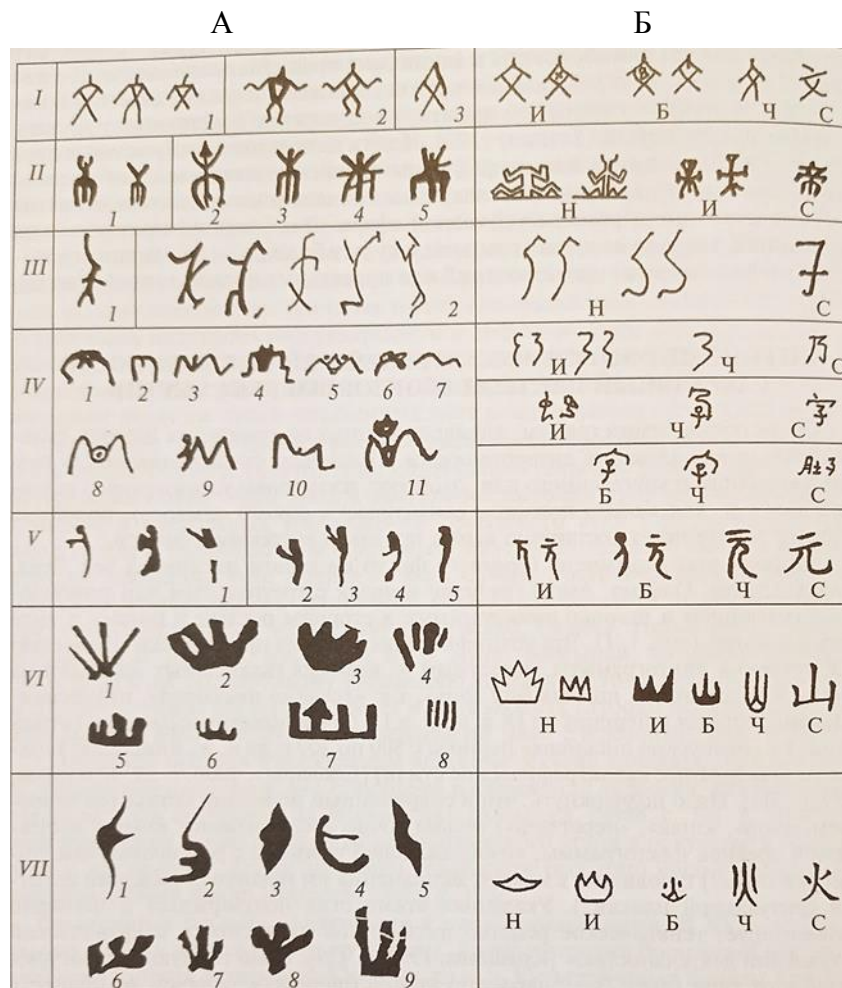 А Б
I 1 2 3 И Б Ч С
文
II 1 2 3 4 5 Н И С
帝
III 1 2 Н С
子
IV 1 2 3 4 5 6 7 И Ч С
乃
И Ч С
字
8 9 10 11 Б Ч С
V 1 2 3 4 5 И Б Ч С
元
VI 1 2 3 4
5 6 7 8 Н И Б Ч С
山
VII 1 2 3 4 5
6 7 8 9 Н И Б Ч С
火